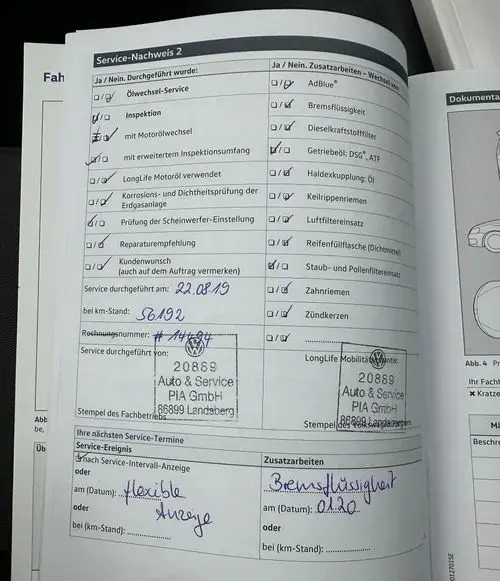 Fah
Service-Nachweis 2
Ja / Nein. Durchgeführt wurde:
Ölwechsel-Service
Inspektion
mit Motorölwechsel
mit erweitertem Inspektionsumfang
LongLife Motoröl verwendet
Korrosions- und Dichtheitsprüfung der
Erdgasanlage
Prüfung der Scheinwerfer-Einstellung
Reparaturempfehlung
Kundenwunsch
(auch auf dem Auftrag vermerken)
Service durchgeführt am: 22.08.19
bei km-Stand: 56192
Rechnungsnummer: # 14494
Service durchgeführt von:
20889
Auto & Service
PIA GmbH
86899 Landsberg
Stempel des Fachbetriebs
Ja / Nein. Zusatzarbeiten – Wechsel von:
AdBlue®
Bremsflüssigkeit
Dieselkraftstofffilter
Getriebeöl: DSG®, ATF
Haldexkupplung: Öl
Keilrippenriemen
Luftfiltereinsatz
Reifenfüllflasche (Dichtmittel)
Staub- und Pollenfiltereinsatz
Zahnriemen
Zündkerzen
LongLife Mobilitätsgarantie:
20889
Auto & Service
PIA GmbH
86899 Landsberg
Stempel des Volkswagen
Ihre nächsten Service-Termine
Service-Ereignis
nach Service-Intervall-Anzeige
oder
am (Datum): flexible
oder Anzeige
bei (km-Stand):
Zusatzarbeiten
Bremsflüssigkeit
am (Datum): 0120
oder
bei (km-Stand):
Dokumenta
Abb. 4 Pr
Ihr Facht
✖ Kratze
Mä
Beschre
Abb
be,
Üb
012701SE